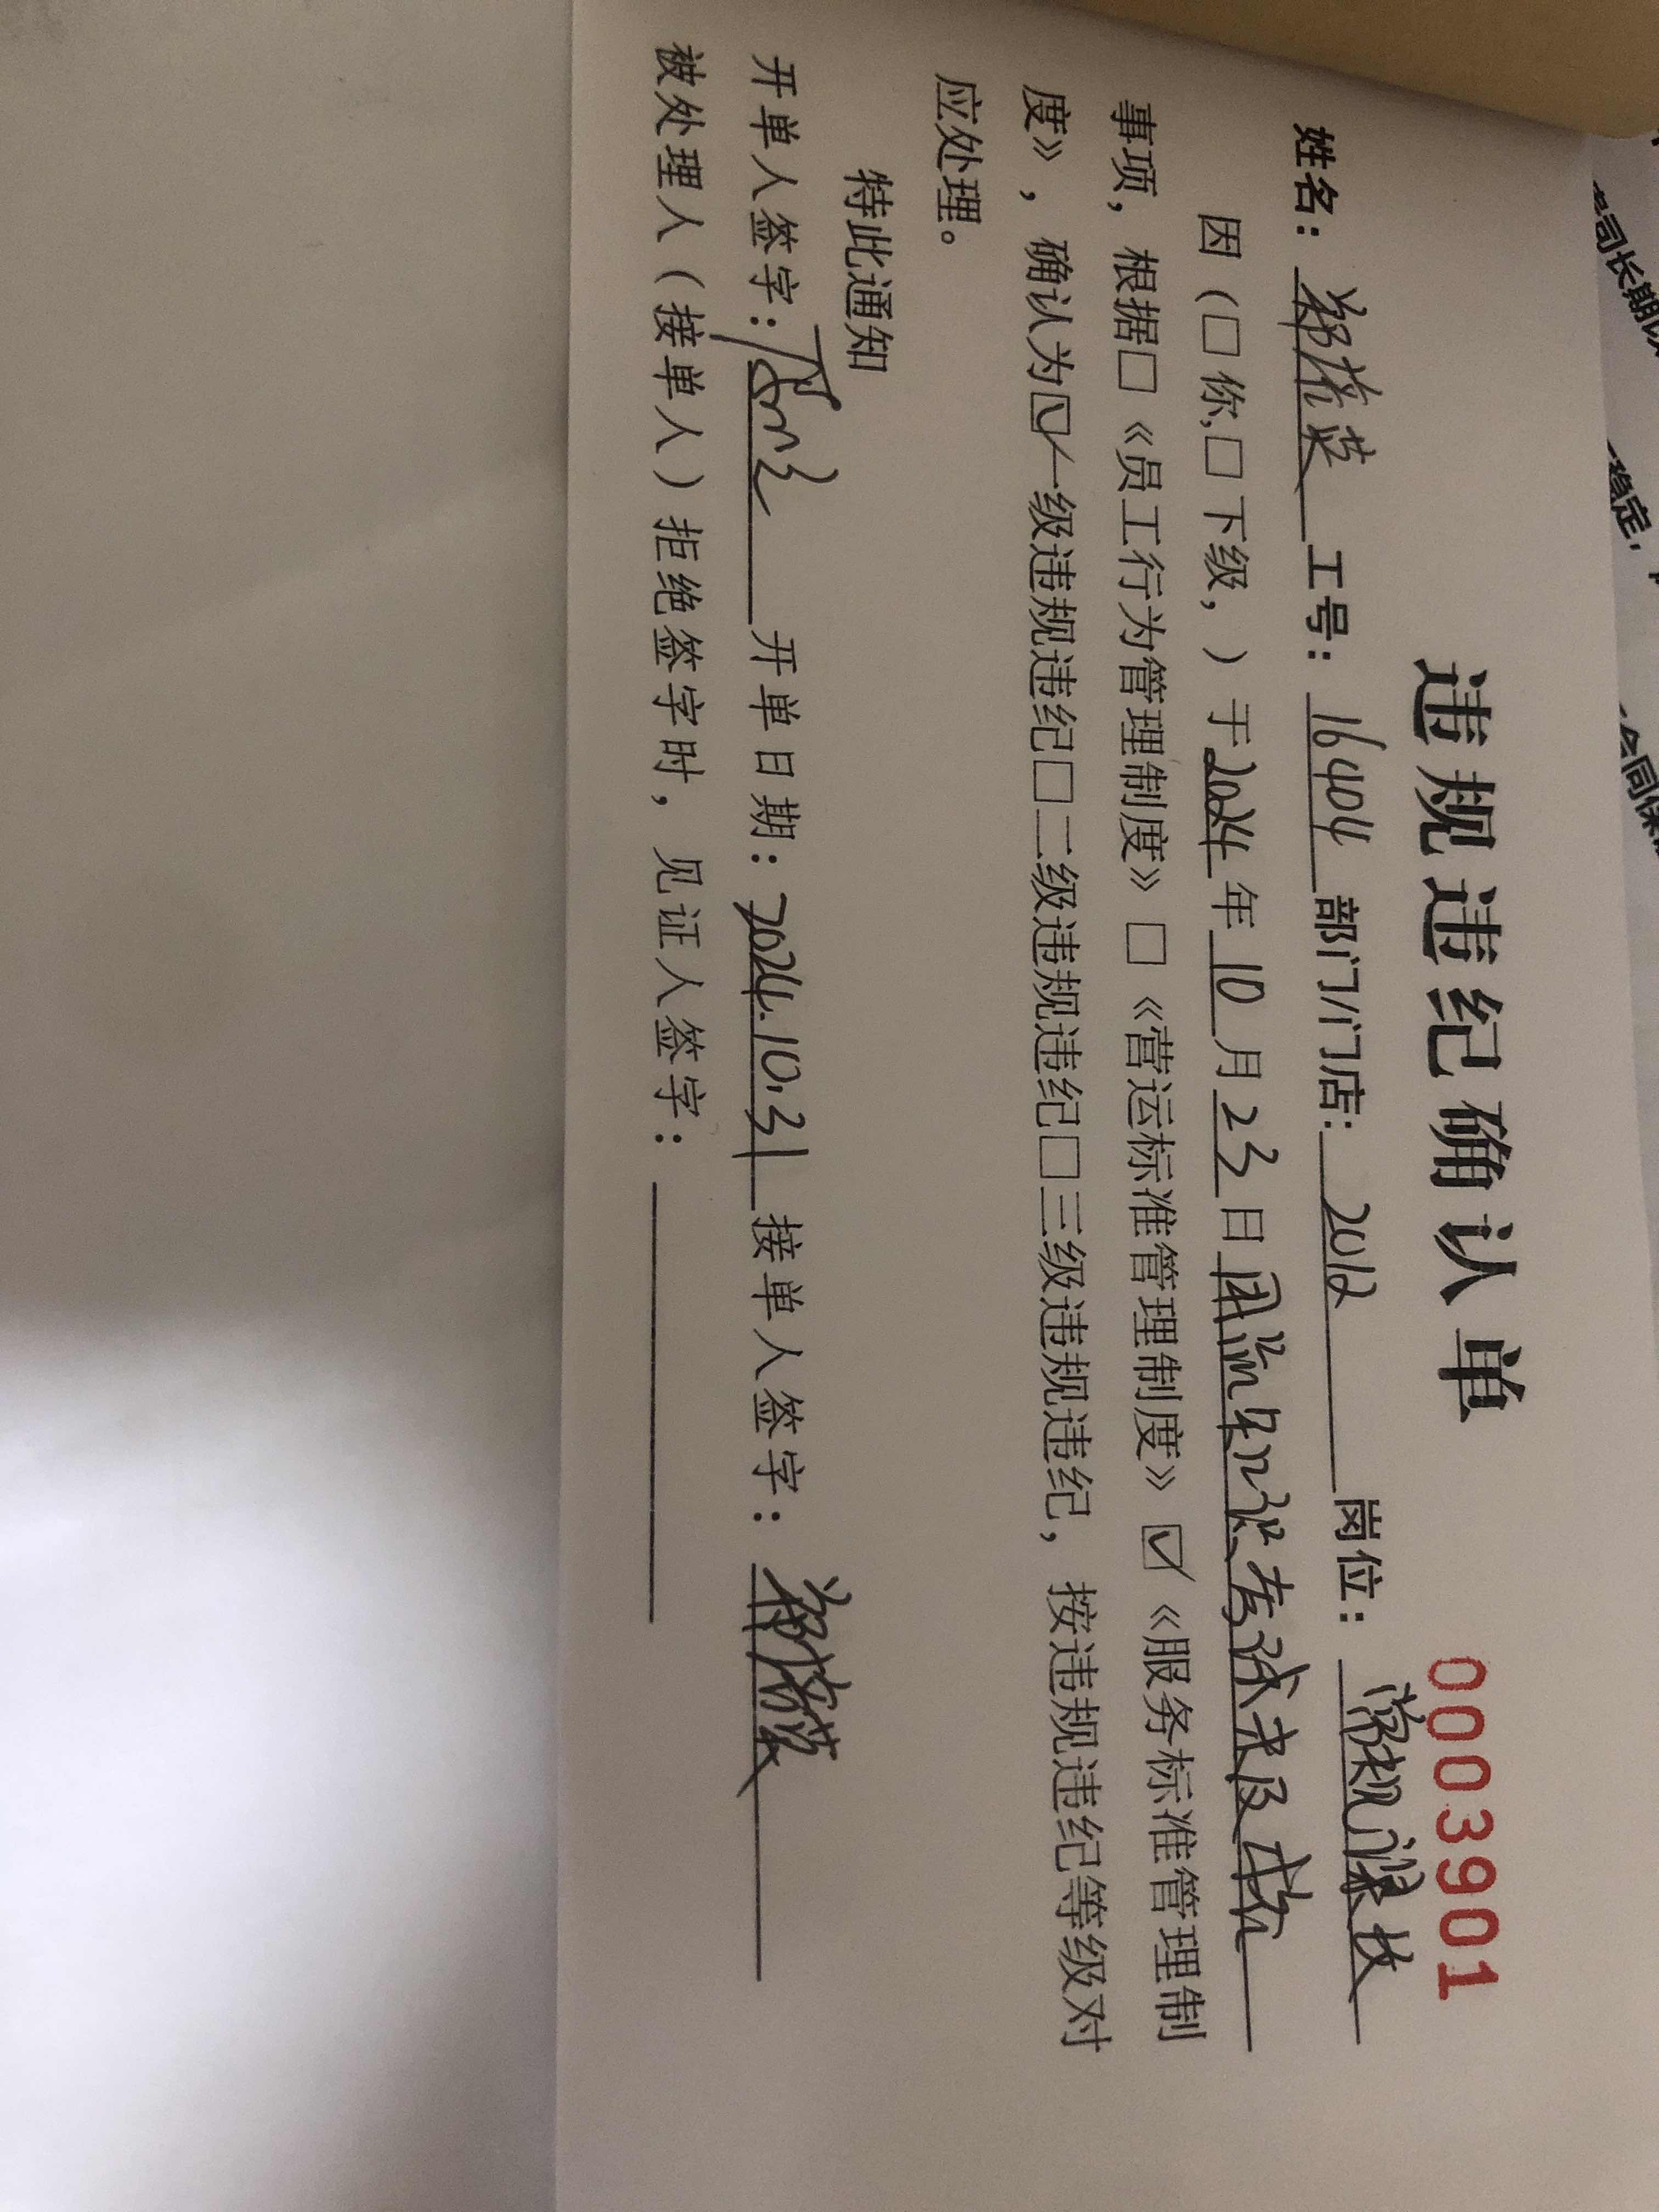 违规违纪确认单 0003901
姓名： 工号：16404 部门/门店：2012 岗位：
因（□你，□下级，）于2024年10月23日因 考试未及格
事项，根据□《员工行为管理制度》□《营运标准管理制度》☑《服务标准管理制
度》，确认为☑一级违规违纪□二级违规违纪□三级违规违纪，按违规违纪等级对
应处理。
特此通知
开单人签字： 开单日期：2024.10.31 接单人签字：
被处理人（接单人）拒绝签字时，见证人签字：
司长期
稳定，
合同保